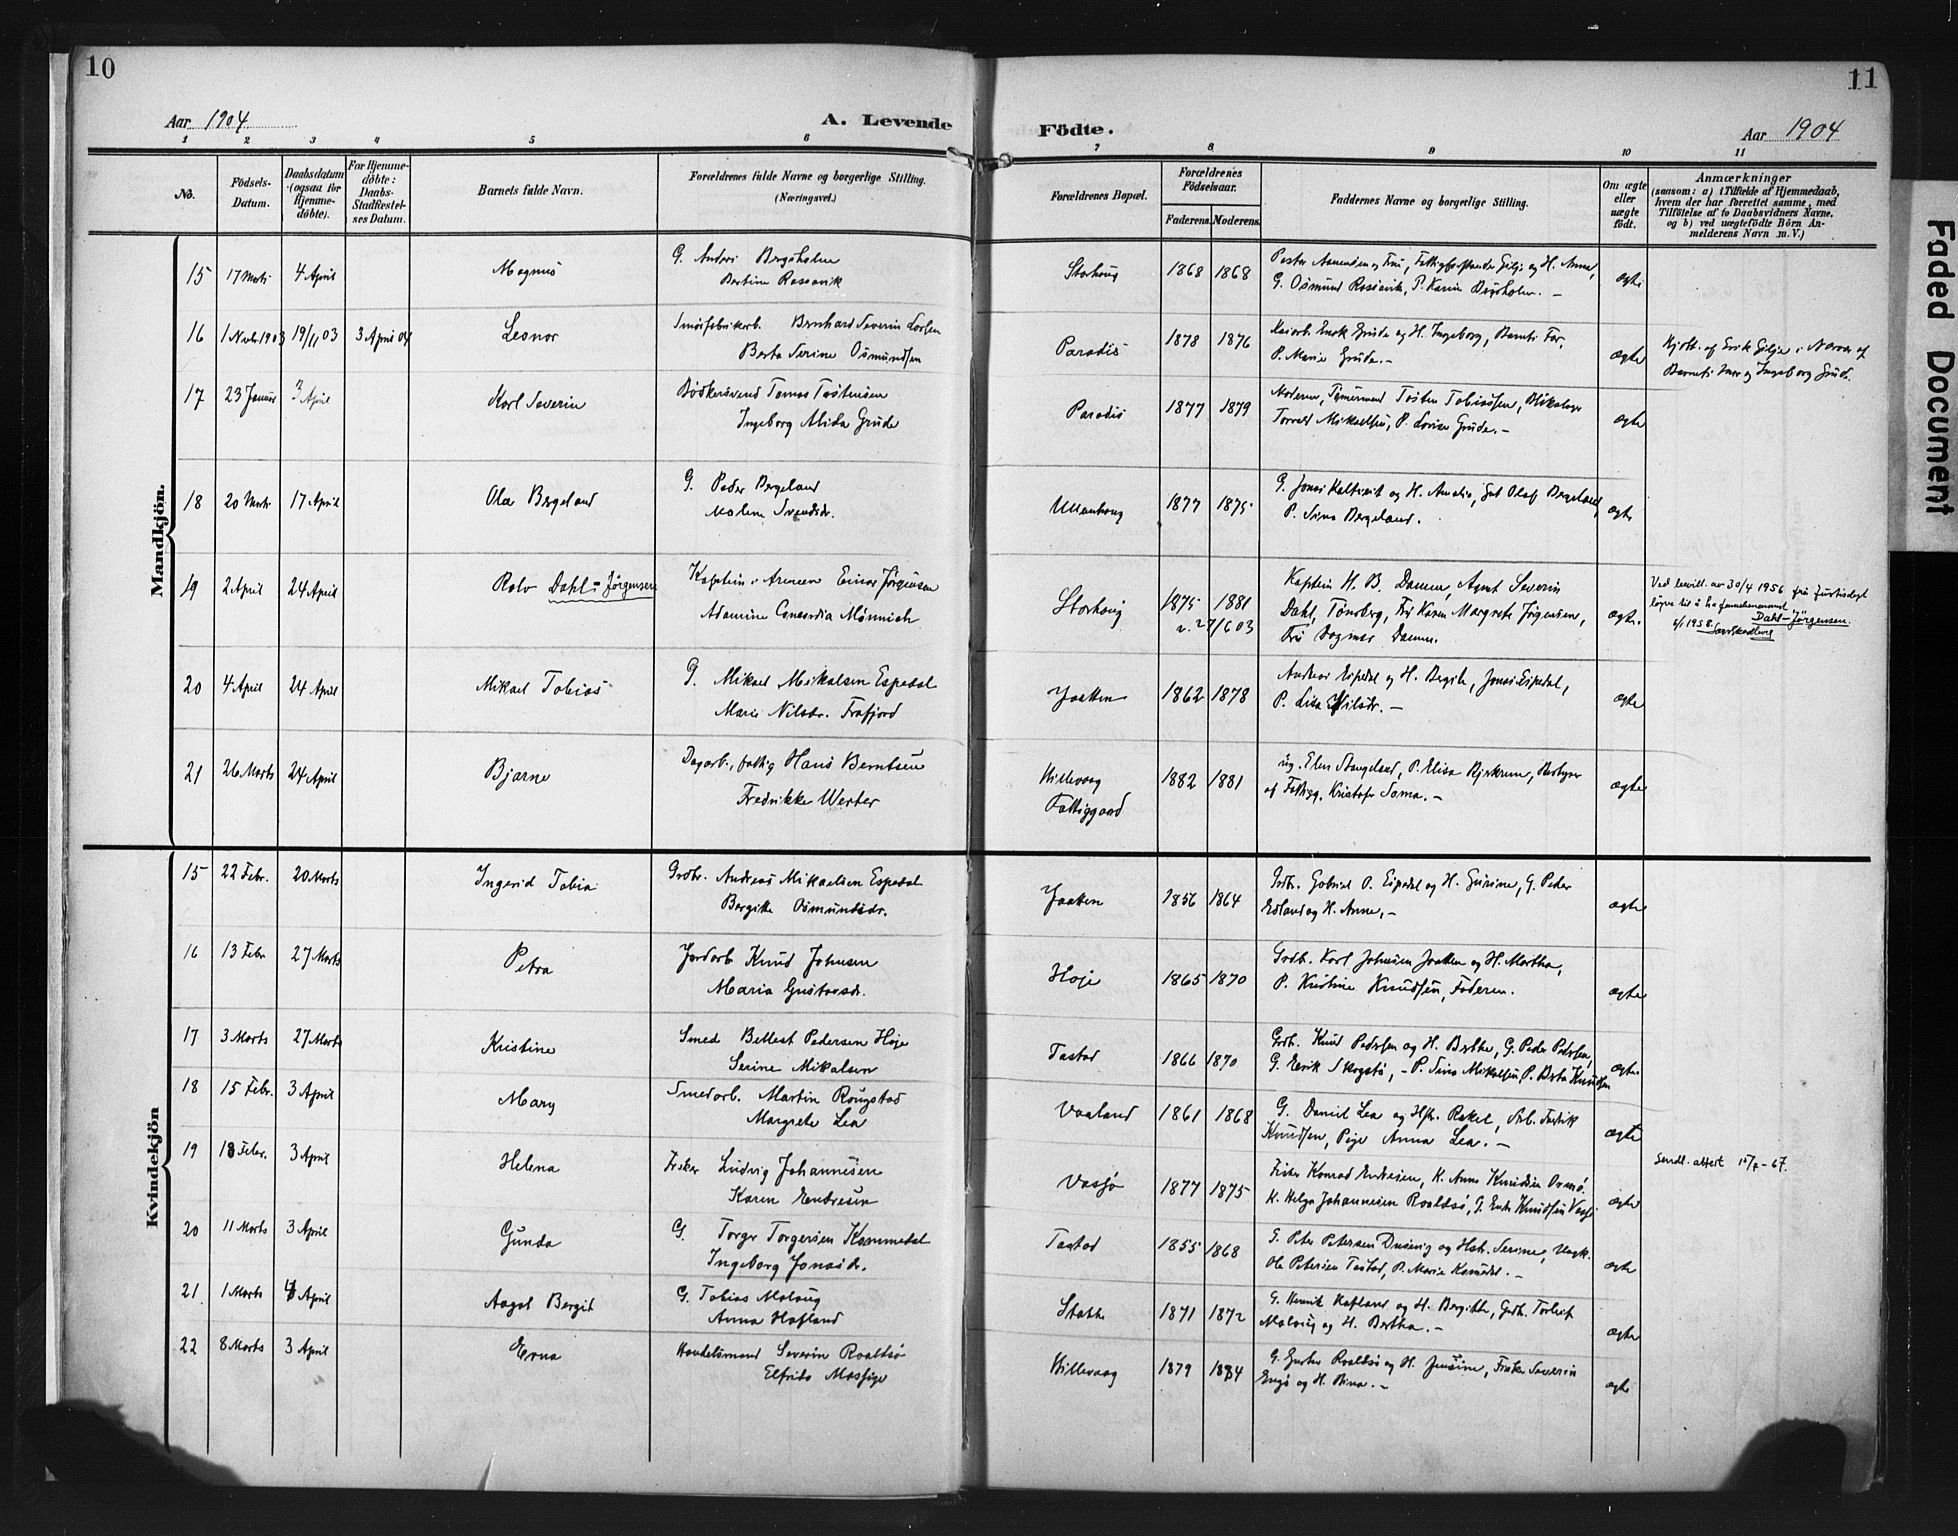 10
11
Aar 1904
A. Levende
Födte.
Aar 1904
1 2 3 4 5 6 7 8 9 10 11
No.
Födsels-Datum.
Daabsdatum (ogsaa for Hjemmedöbte).
For Hjemmedöbte: Daabs-Stadfæstelses Datum.
Barnets fulde Navn.
Forældrenes fulde Navne og borgerlige Stilling. (Næringsvei.)
Forældrenes Bopæl.
Forældrenes Födselsaar.
Faderens. Moderens.
Faddernes Navne og borgerlige Stilling.
Om ægte eller uægte födt.
Anmærkninger
(saasom: a) i Tilfælde af Hjemmedaab, hvem der har forrettet samme, med Tilföielse af to Daabsvidners Navne, og b) ved uægtefödte Börn Anmelderens Navn m. V.)
Mandkjön.
15 17 Marts 4 April Magnus G. Andreas Bergsholm Storhaug 1868 1868
Bertine Rossavik
G. Osmund Rossavik, P. Karin Bergsholm. — ægte
16 1 Novbr 1903 19/11 03 3 April 04 Leonor Bernhard Severin Larsen Paradis 1878 1876 Enok Grude og H. Ingeborg, Barnets Far,
Berta Serine Osmundsen
P. Marie Grude. — ægte
Hjdbt. af Erik Gilje i Nærvær af
Barnets Mor og Ingeborg Grude.
17 23 Januar 3 April Karl Severin Bødkersvend Tomas Tøstensen Paradis 1877 1879 Faderen, Tømermand Tøsten Tobiassen,
Ingeborg Alida Grude
Torvald Mikaelsen, P. Lovise Grude. — ægte
18 20 Marts 17 April Ola Bergeland G. Peder Bergeland Ullenhaug 1877 1875 G. Jonas Kaltveit og H. Amalia, Gut Olaf Bergeland,
Malene Svendsdr.
P. Sina Bergeland. ægte
19 2 April 24 April Rolv Dahl=Jørgensen Kaptein i Armeen Einar Jørgensen Storhaug 1875 1881 Kaptein H. B. Damm, Agent Severin
Adamine Concordia Mønnich v. 27/6 03
Dahl, Tønsberg, Frk Karen Margrete Jørgensen,
Fru Dagmar Damm. ægte.
Ved bevill. av 30/4 1956 fra Justisdept
Dahl-Jørgensen.
6/1 1958.
20 4 April 24 April Mikael Tobias G. Mikael Mikalsen Espedal Jaatten 1862 1878 Andreas Espedal og H. Bergite, Jonas Espedal,
Marie Nilsdr. Frafjord
P. Lisa Nilsdr. — ægte
21 26 Marts 24 April Bjarne Dagarb., fattig Hans Berntsen Hillevaag 1882 1881 ug. Elen Stangeland, P. Elisa Bjerkrem, Bestyrer
Fredrikke Werter Fattiggaard
af Fattigg. Kristofer Soma. — ægte
Kvindekjön
15 22 Febr. 20 Marts Ingerid Tobia Grdbr. Andreas Mikaelsen Espedal Jaatten 1856 1864 Grdb. Gabriel O. Espedal og H. Gurine, G. Peder
Bergitte Osmundsdr.
Edland og H. Anne, — ægte
16 13 Febr 27 Marts Petra Jordarb Knud Johnsen Høje 1865 1870 Grdb. Karl Johnsen Jaatten og H. Martha,
Maria Gustavsdr.
P. Kristine Knudsen, Faderen. ægte
17 3 Marts 27 Marts Kristine Smed Bellest Pedersen Høje Tastad 1866 1870 Grdb. Knud Pedersen og H. Berthe, G. Peder Pedersen,
Serine Mikalsen
G. Eerik Skogstø, — P. Sina Mikalsen, P. Berta Knudsen ægte
18 15 Febr. 3 April Mary Smedarb. Martin Rongstad Vaaland 1861 1868 G. Daniel Lea og Hstr. Rakel, Arb. Fredrik
Margrete Lea
Knudsen, Pige Anna Lea. — ægte
19 18 Febr. 3 April Helena Fisker Ludvig Johannesen Vassø 1877 1875 Fisker Konrad Endresen, K. Anna Knudsen Ormø.
Karen Endresen
K. Helga Johannesen Roaldsø, G. Endre Knudsen Vassø ægte
Sendt attest 15/7-67.
20 11 Marts 3 April Gunda G. Torger Torgersen Kommedal Tastad 1855 1868 G. Peter Petersen Dusevig og Hstr. Serine, Ungk.
Ingeborg Jonasdr.
Ole Petersen Tastad, P. Marie Komedal. — ægte
21 1 Marts 4 April Aagot Bergit G. Tobias Malaug 1871 1872 G. Henrik Hafland og H. Bergitte, Grdb. Torleif
Anna Hafland
Malaug og H. Bertha. — ægte
22 8 Marts 3 April Erna Handelsmand Severin Roaldsø Hillevaag 1879 1884 G. Gustav Roaldsø og H. Jensine, Fisker Severin
Elfrida Massige
Engø og H. Stina. — ægte
Faded Document